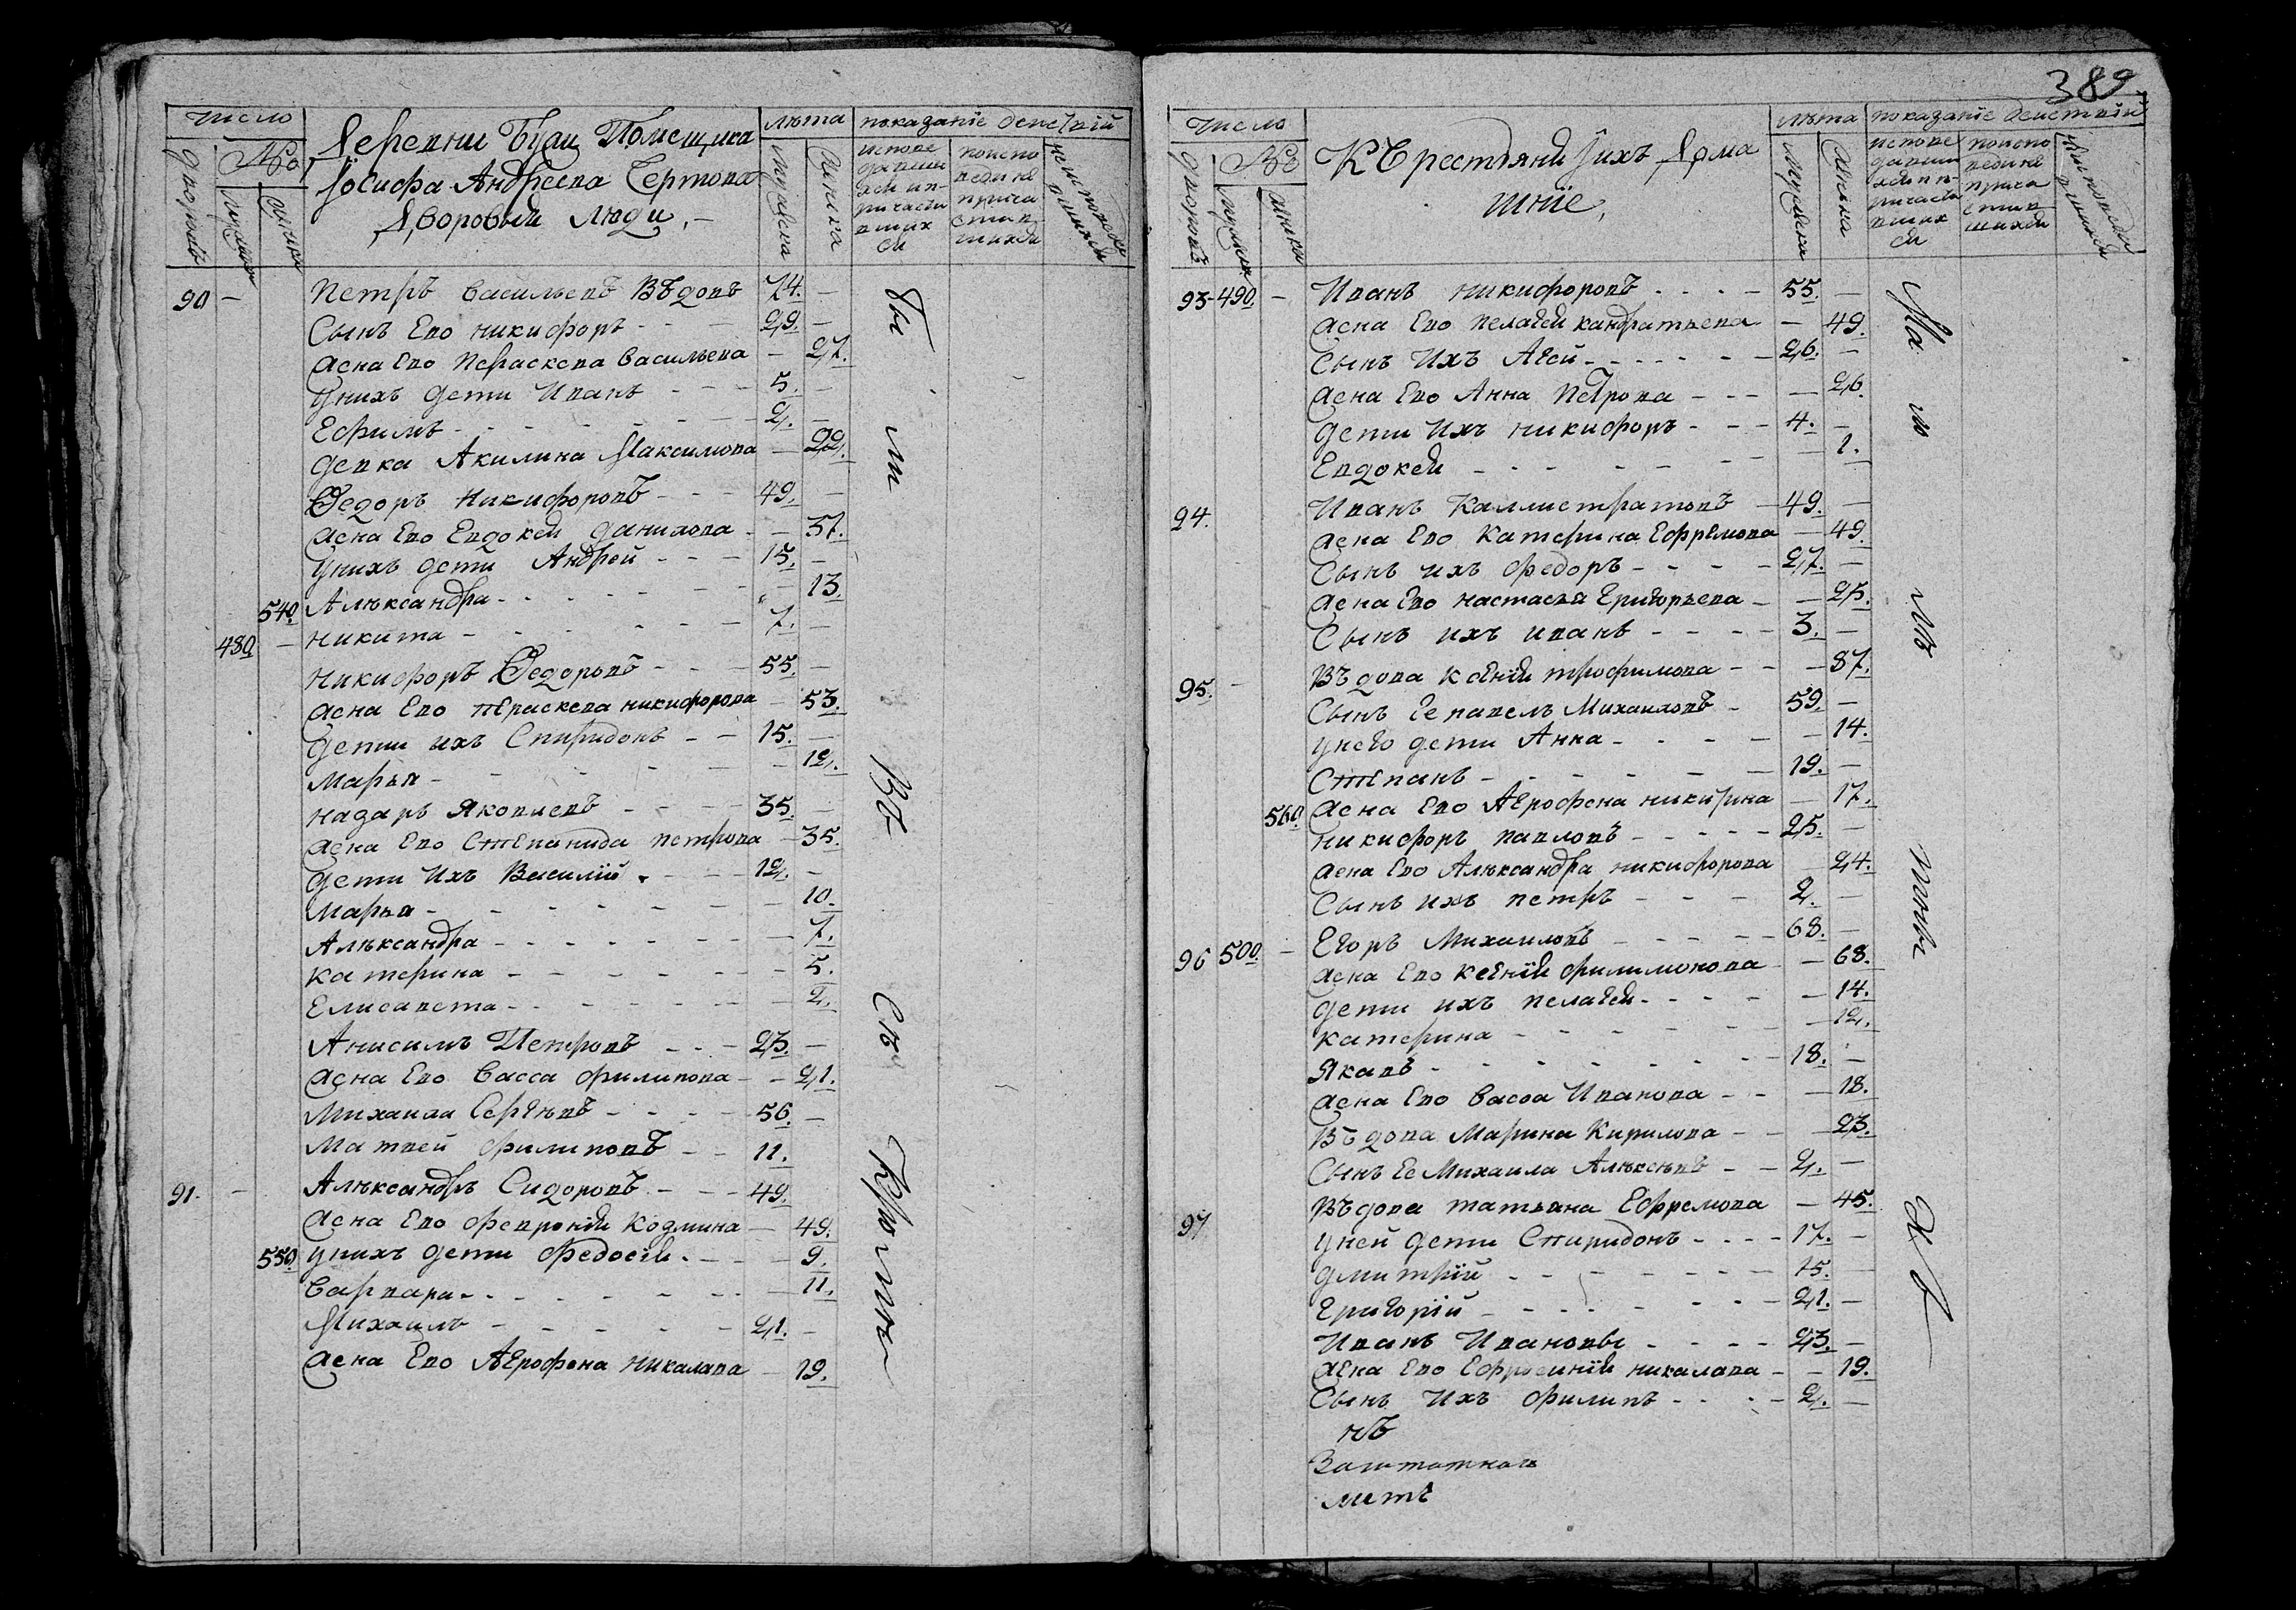 число
№
дворовъ
мужска
женска
Деревни Буди Помещика
Іосифа Андреева Чертова
Дворовыи люди
лѣта
мужска
женска
показаніе деиствій
испове
давши
яся ип-
ричасти
вших
ся
поиспо
ведине
прича
стив
шихся
90 — Петръ Васильевъ Вѣдовъ 74. —
Сынъ Ево никифоръ 29. —
жена Ево Пераскева Васильева — 27.
униxъ дети Иванъ 5. —
Ефимъ 2. —
девка Акилина Максимова — 22.
Ѳедоръ Никифоровъ 49. —
жена Ево Евдокея данилова — 37.
унихъ дети Андрей 15. —
540. Алѣксандра — 13.
480. — никита 7. —
никифоръ Ѳедоровъ 55. —
жена Ево пераскева никифорова — 53.
дети ихъ Спиридонъ 15. —
марья — 12.
назаръ Яковлевъ 35. —
жена Ево Степанида петрова — 35.
дети Ихъ Василій 12. —
марья — 10.
Алѣксандра — 7.
катерина — 5.
Елисавета — 2.
Анисимъ Петровъ 23. —
жена Ево Васса филипова — 21.
Михаила Сергѣевъ 56. —
Матвей филиповъ 11.
91. — Алѣксандръ Сидоровъ 49.
жена Ево февронія козмина — 49.
550. унихъ дети федосія — 9.
варвара — 11.
Михаилъ 21. —
жена Ево Агрофена никалава — 19.
бы
ли
Въ
Съ
389
число
№
дворовъ
мужска
женска
КЪрестьяня Ихъ Дома
шнїе
лѣта
мужска
женска
показаніе деиствій
испове
давши
яся ип-
ричаст
вших
ся
поиспо
ведине
прича
стив
шихся
93 - 490. — Иванъ никифоровъ 55. —
жена Ево пелагея кандратьева — 49.
Сынъ Ихъ Агей 26. —
жена Ево Анна Петрова — 26.
дети Ихъ никифоръ 4. —
Евдокея — 1.
94. Иванъ Каллистратовъ 49. —
жена Ево Катерина Ефремова — 49.
Сынъ ихъ федоръ 27. —
жена Ево настасья Григорьева — 25.
Сынъ ихъ иванъ 3. —
95. — Въдова ксенія трофимова — 87.
Сынъ Ее павелъ Михаиловъ 59. —
унего дети Анна — 14.
Степанъ 19. —
560. жена Ево Агрофена никитина — 17.
никифоръ павловъ 25. —
жена Ево Алѣксандра никифорова — 24.
Сынъ ихъ петръ 2. —
96 500. — Егоръ Михаиловъ 68. —
жена Ево ксенїя филимонова — 68.
дети ихъ пелагея — 14.
катерина — 12.
Якавъ 18. —
жена Ево васса Иванова — 18.
Въдова Марина Кирилова — 23.
Сынъ Ее Михаила Алѣксѣевъ 2. —
97 Въдова татьяна Ефремова — 45.
уней дети Спиридонъ 17. —
дмитрїй 15. —
Григорїй 21. —
Иванъ Ивановы 23. —
жена Ево Ефросинїя никалава — 19.
Сынъ Ихъ филипъ 2. —
нъ